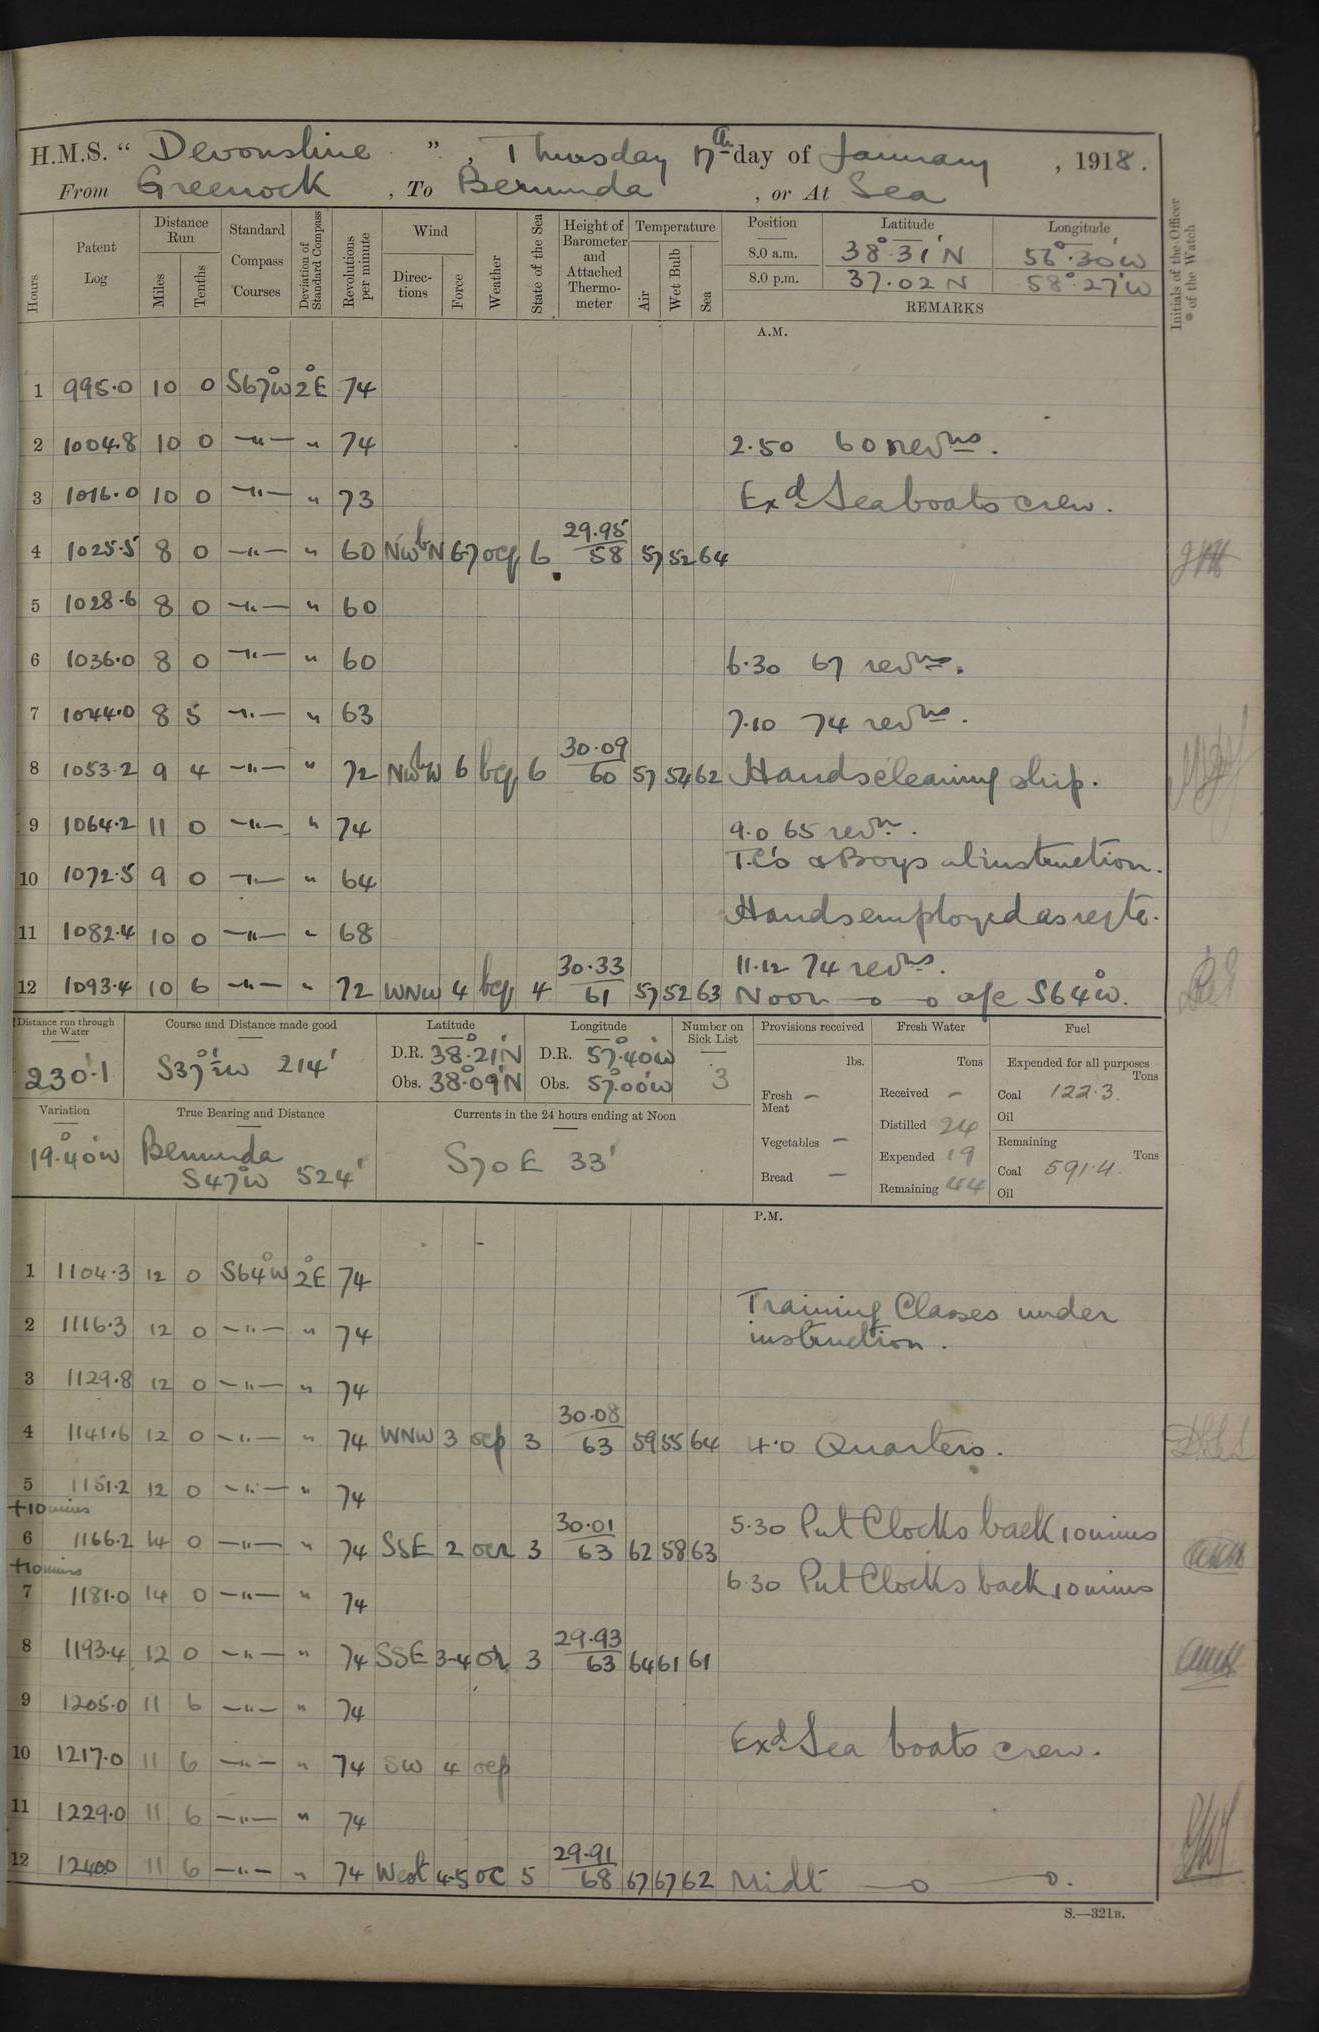 H.M.S. “ Devonshire ” , Thursday 17th day of January , 1918.
From Greenock , To Bermuda , or At Sea
Hours Patent Log Distance Run Miles Tenths Standard Compass Courses Deviation of Standard Compass Revolutions per minute Wind Directions Force Weather State of the Sea Height of Barometer and Attached Thermometer Temperature Air Wet Bulb Sea Position Latitude Longitude Initials of the Officer of the Watch
8.0 a.m. 38°.31'N 56°.30'W
8.0 p.m. 37.02 N 58°.27'W
REMARKS
A.M.
1 995.0 10 0 S67°W 2°E 74
2 1004.8 10 0 —"— " 74 2.50 60 revns.
3 1016.0 10 0 —"— " 73 Exd Seaboats crew.
4 1025.5 8 0 —"— " 60 NWbN 6-7 ocq 6 29.95 58 57 52 64
5 1028.6 8 0 —"— " 60
6 1036.0 8 0 —"— " 60 6.30 67 revns.
7 1044.0 8 5 —"— " 63 7.10 74 revns.
8 1053.2 9 4 —"— " 72 NWbW 6 bcq 6 30.09 60 57 54 62 Hands cleaning ship.
9 1064.2 11 0 —"— " 74 9.0 65 revn.
T.C's & Boys at instruction.
10 1072.5 9 0 —"— " 64
Hands employed as reqte.
11 1082.4 10 0 —"— " 68
11.12 74 revns.
12 1093.4 10 6 —"— " 72 WNW 4 bcq 4 30.33 61 57 52 63 Noon —o —o a/c S64°W.
Distance run through the Water Course and Distance made good Latitude Longitude Number on Sick List Provisions received Fresh Water Fuel
230.1 S37½°W 214' D.R. 38°.21'N D.R. 57°.40'W
Obs. 38°09'N Obs. 57°.00'W 3
lbs. Tons Expended for all purposes Tons
Fresh Meat — Received — Coal 122.3
Distilled 24 Oil
Variation True Bearing and Distance Currents in the 24 hours ending at Noon
19°.40'W Bermuda S47°W 524' S70E 33'
Vegetables — Expended 19 Remaining Tons
Bread — Remaining 44 Coal 591.4
Oil
P.M.
1 1104.3 12 0 S64°W 2°E 74
Training Classes under
2 1116.3 12 0 —"— " 74 instruction.
3 1129.8 12 0 —"— " 74
4 1141.6 12 0 —"— " 74 WNW 3 ocp 3 30.08 63 59 55 64 4.0 Quarters.
5 1151.2 12 0 —"— " 74
+10 mins 5.30 Put Clocks back 10 mins
6 1166.2 14 0 —"— " 74 SSE 2 ocr 3 30.01 63 62 58 63
+10 mins 6.30 Put Clocks back 10 mins
7 1181.0 14 0 —"— " 74
8 1193.4 12 0 —"— " 74 SSE 3-4 or 3 29.93 63 64 61 61
9 1205.0 11 6 —"— " 74
Exd Sea boats crew.
10 1217.0 11 6 —"— " 74 SW 4 ocp
11 1229.0 11 6 —"— " 74
12 1240.0 11 6 —"— " 74 West 4-5 oc 5 29.91 68 67 67 62 Midt —o —o.
S.—321B.